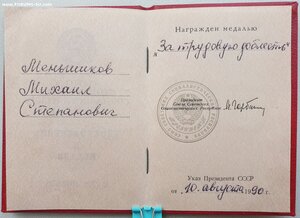 Меньшиков
Михаил
Степанович
Награжден медалью
„За трудовую доблесть“
Президент
Союза Советских
Социалистических Республик
М. Горбачев
Указ Президента СССР
от „10“ августа 1990 г.